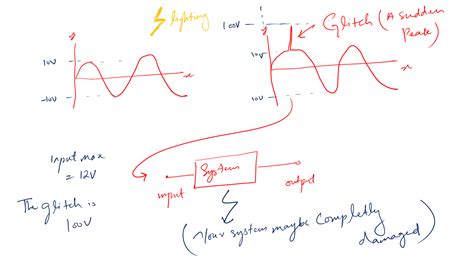 lighting
y
10V
x
-10V
y
100V
10V
10V
x
Glitch (A sudden
Peak)
Input max
= 12V
The glitch is
100V
System
input
output
(Your system maybe completly
damaged)